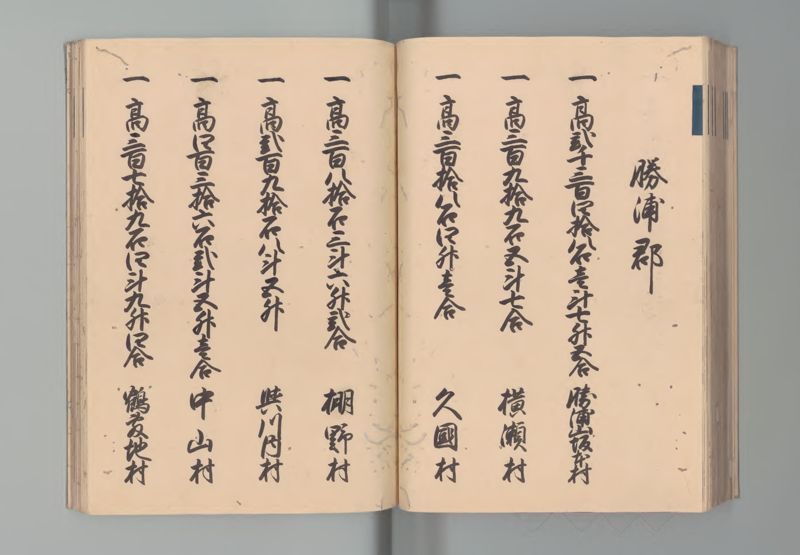 勝浦郡
一 高弐千三百四拾八石壱斗七升五合 勝浦坂本村
一 高三百九拾九石五斗七合 横瀬村
一 高三百拾八石四升壱合 久國村
一 高三百八拾石三斗六升弐合 棚野村
一 高弐百九拾石八斗五升 與川内村
一 高四百三拾六石弐斗五升壱合 中山村
一 高三百七拾九石四斗九升四合 鶴敷地村